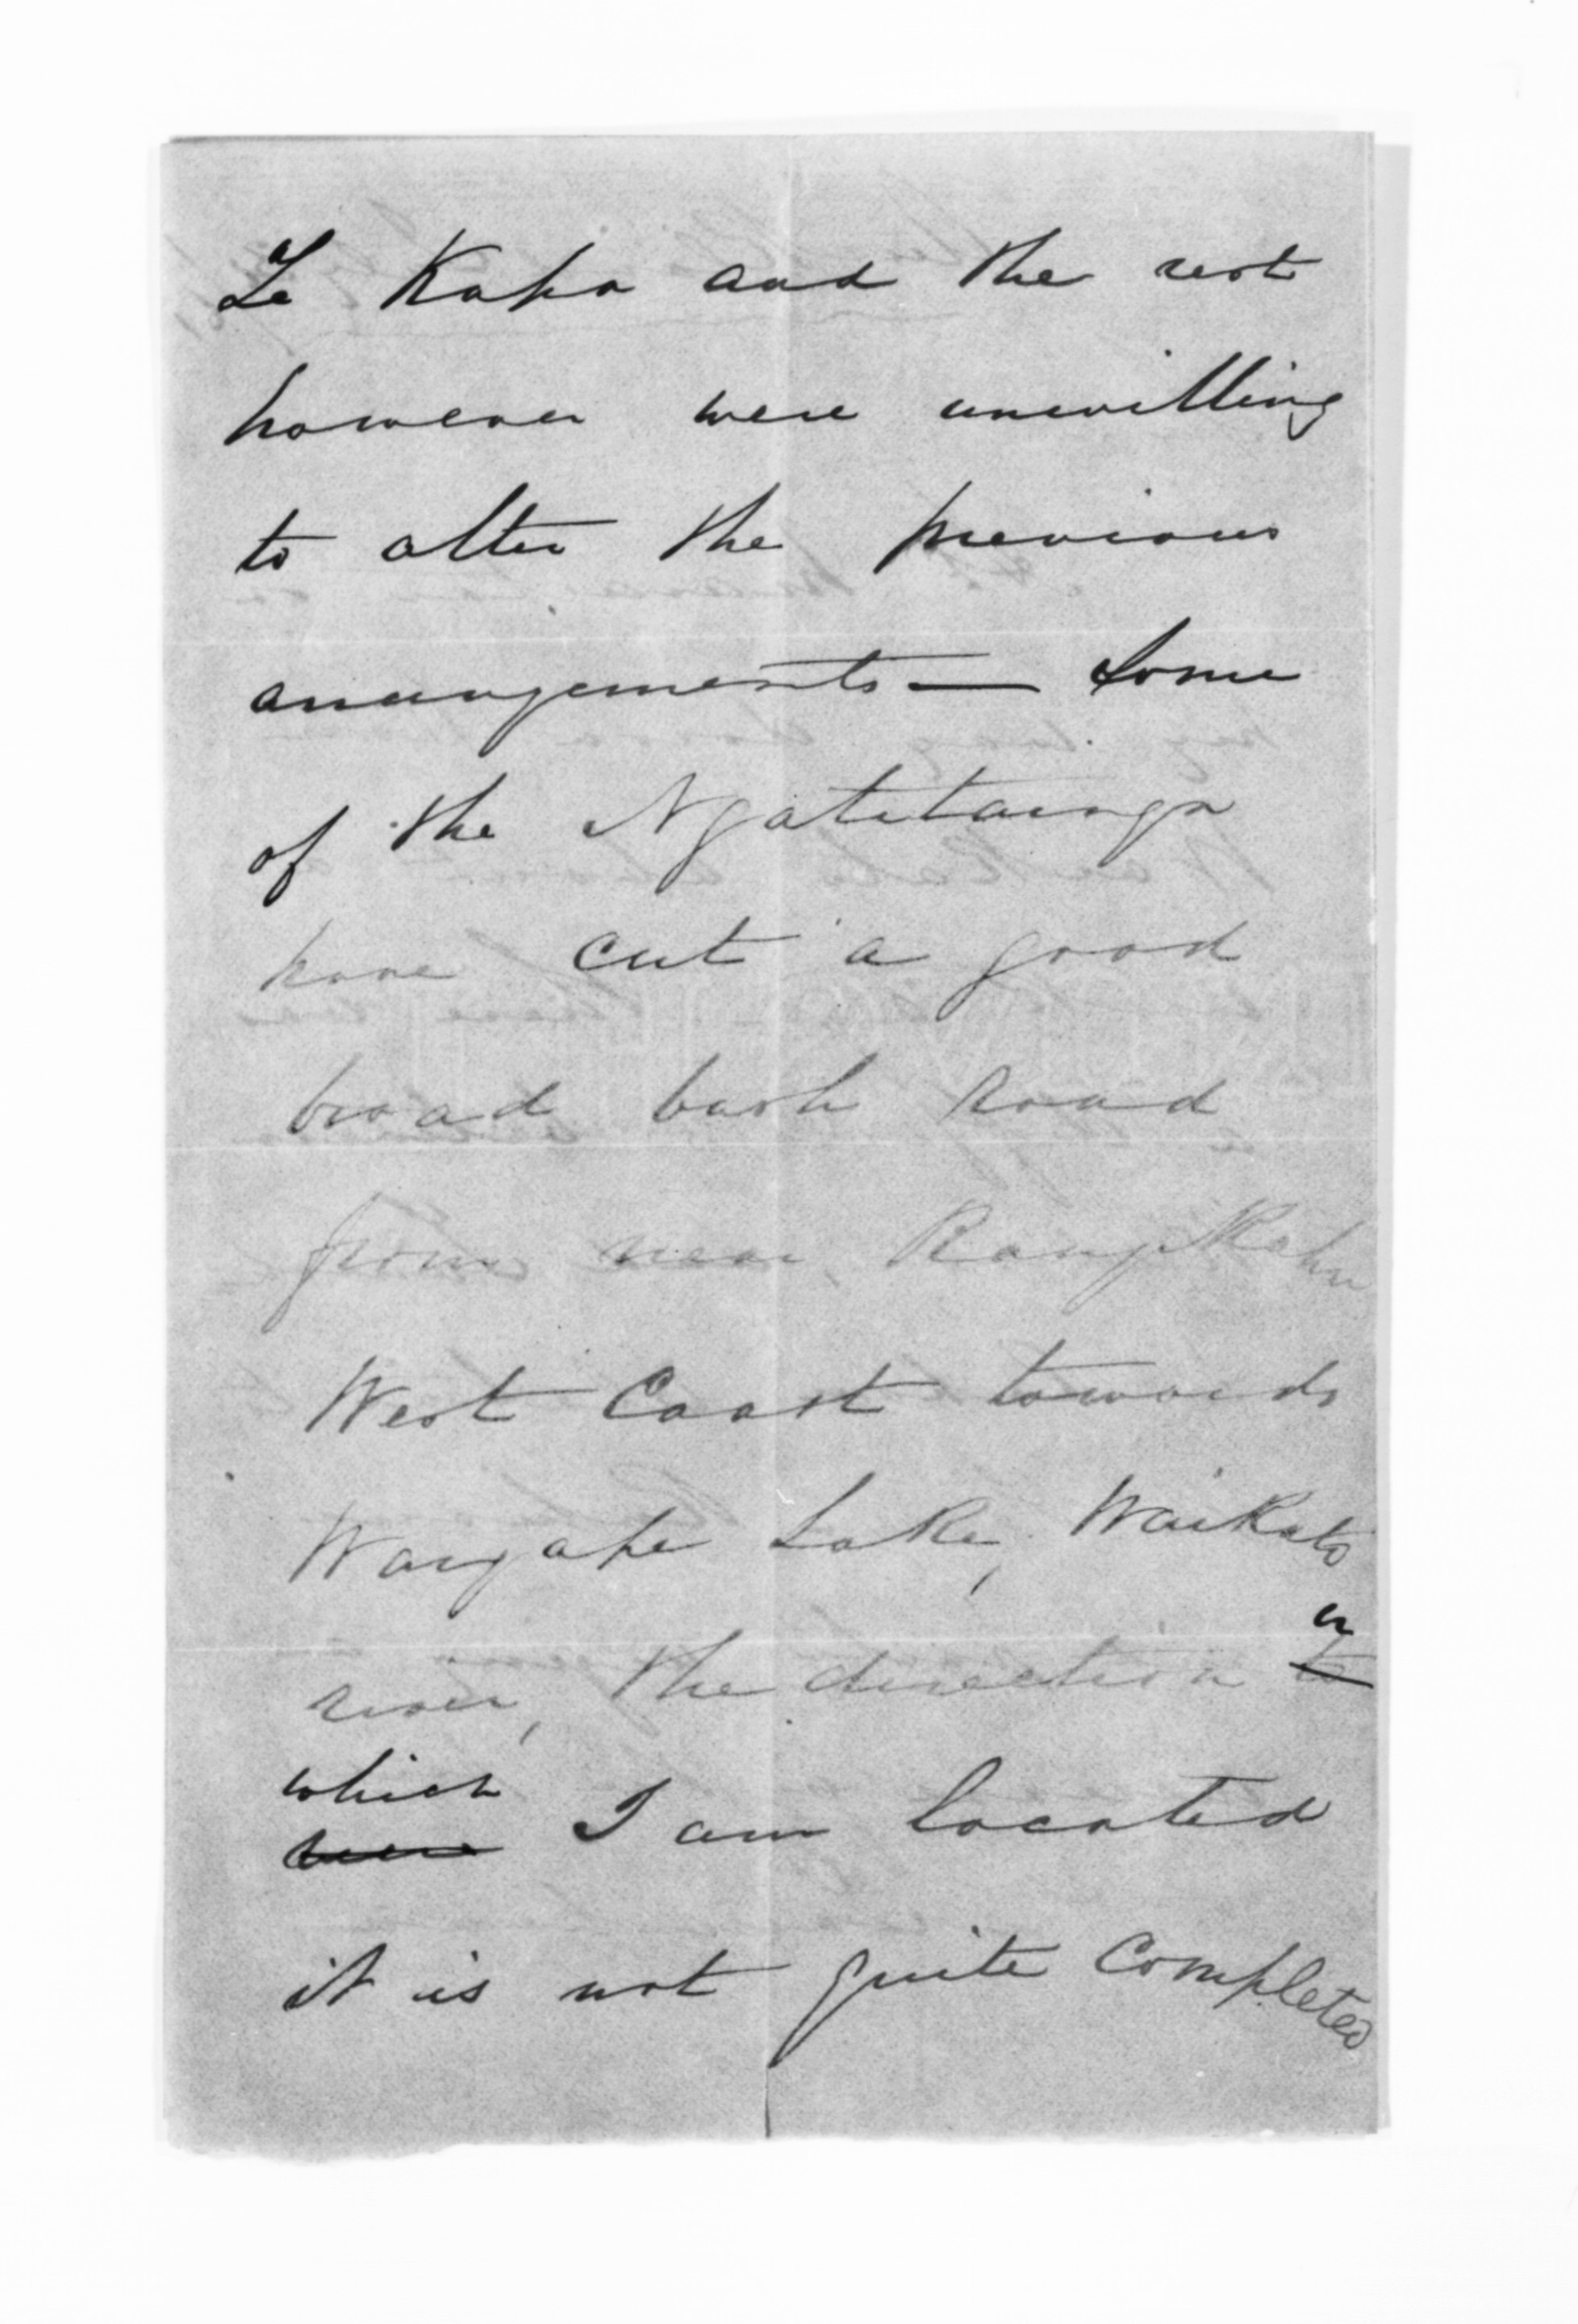 Te Kapa and the rest
however were unwilling
to alter the previous
arrangements — Some
of the Ngatitainga
have cut a good
broad bush road
from near, Rangikahu
West Coast towards
Wangape Lake, Waikato
river, the direction to in
were which I am located
it is not quite completed